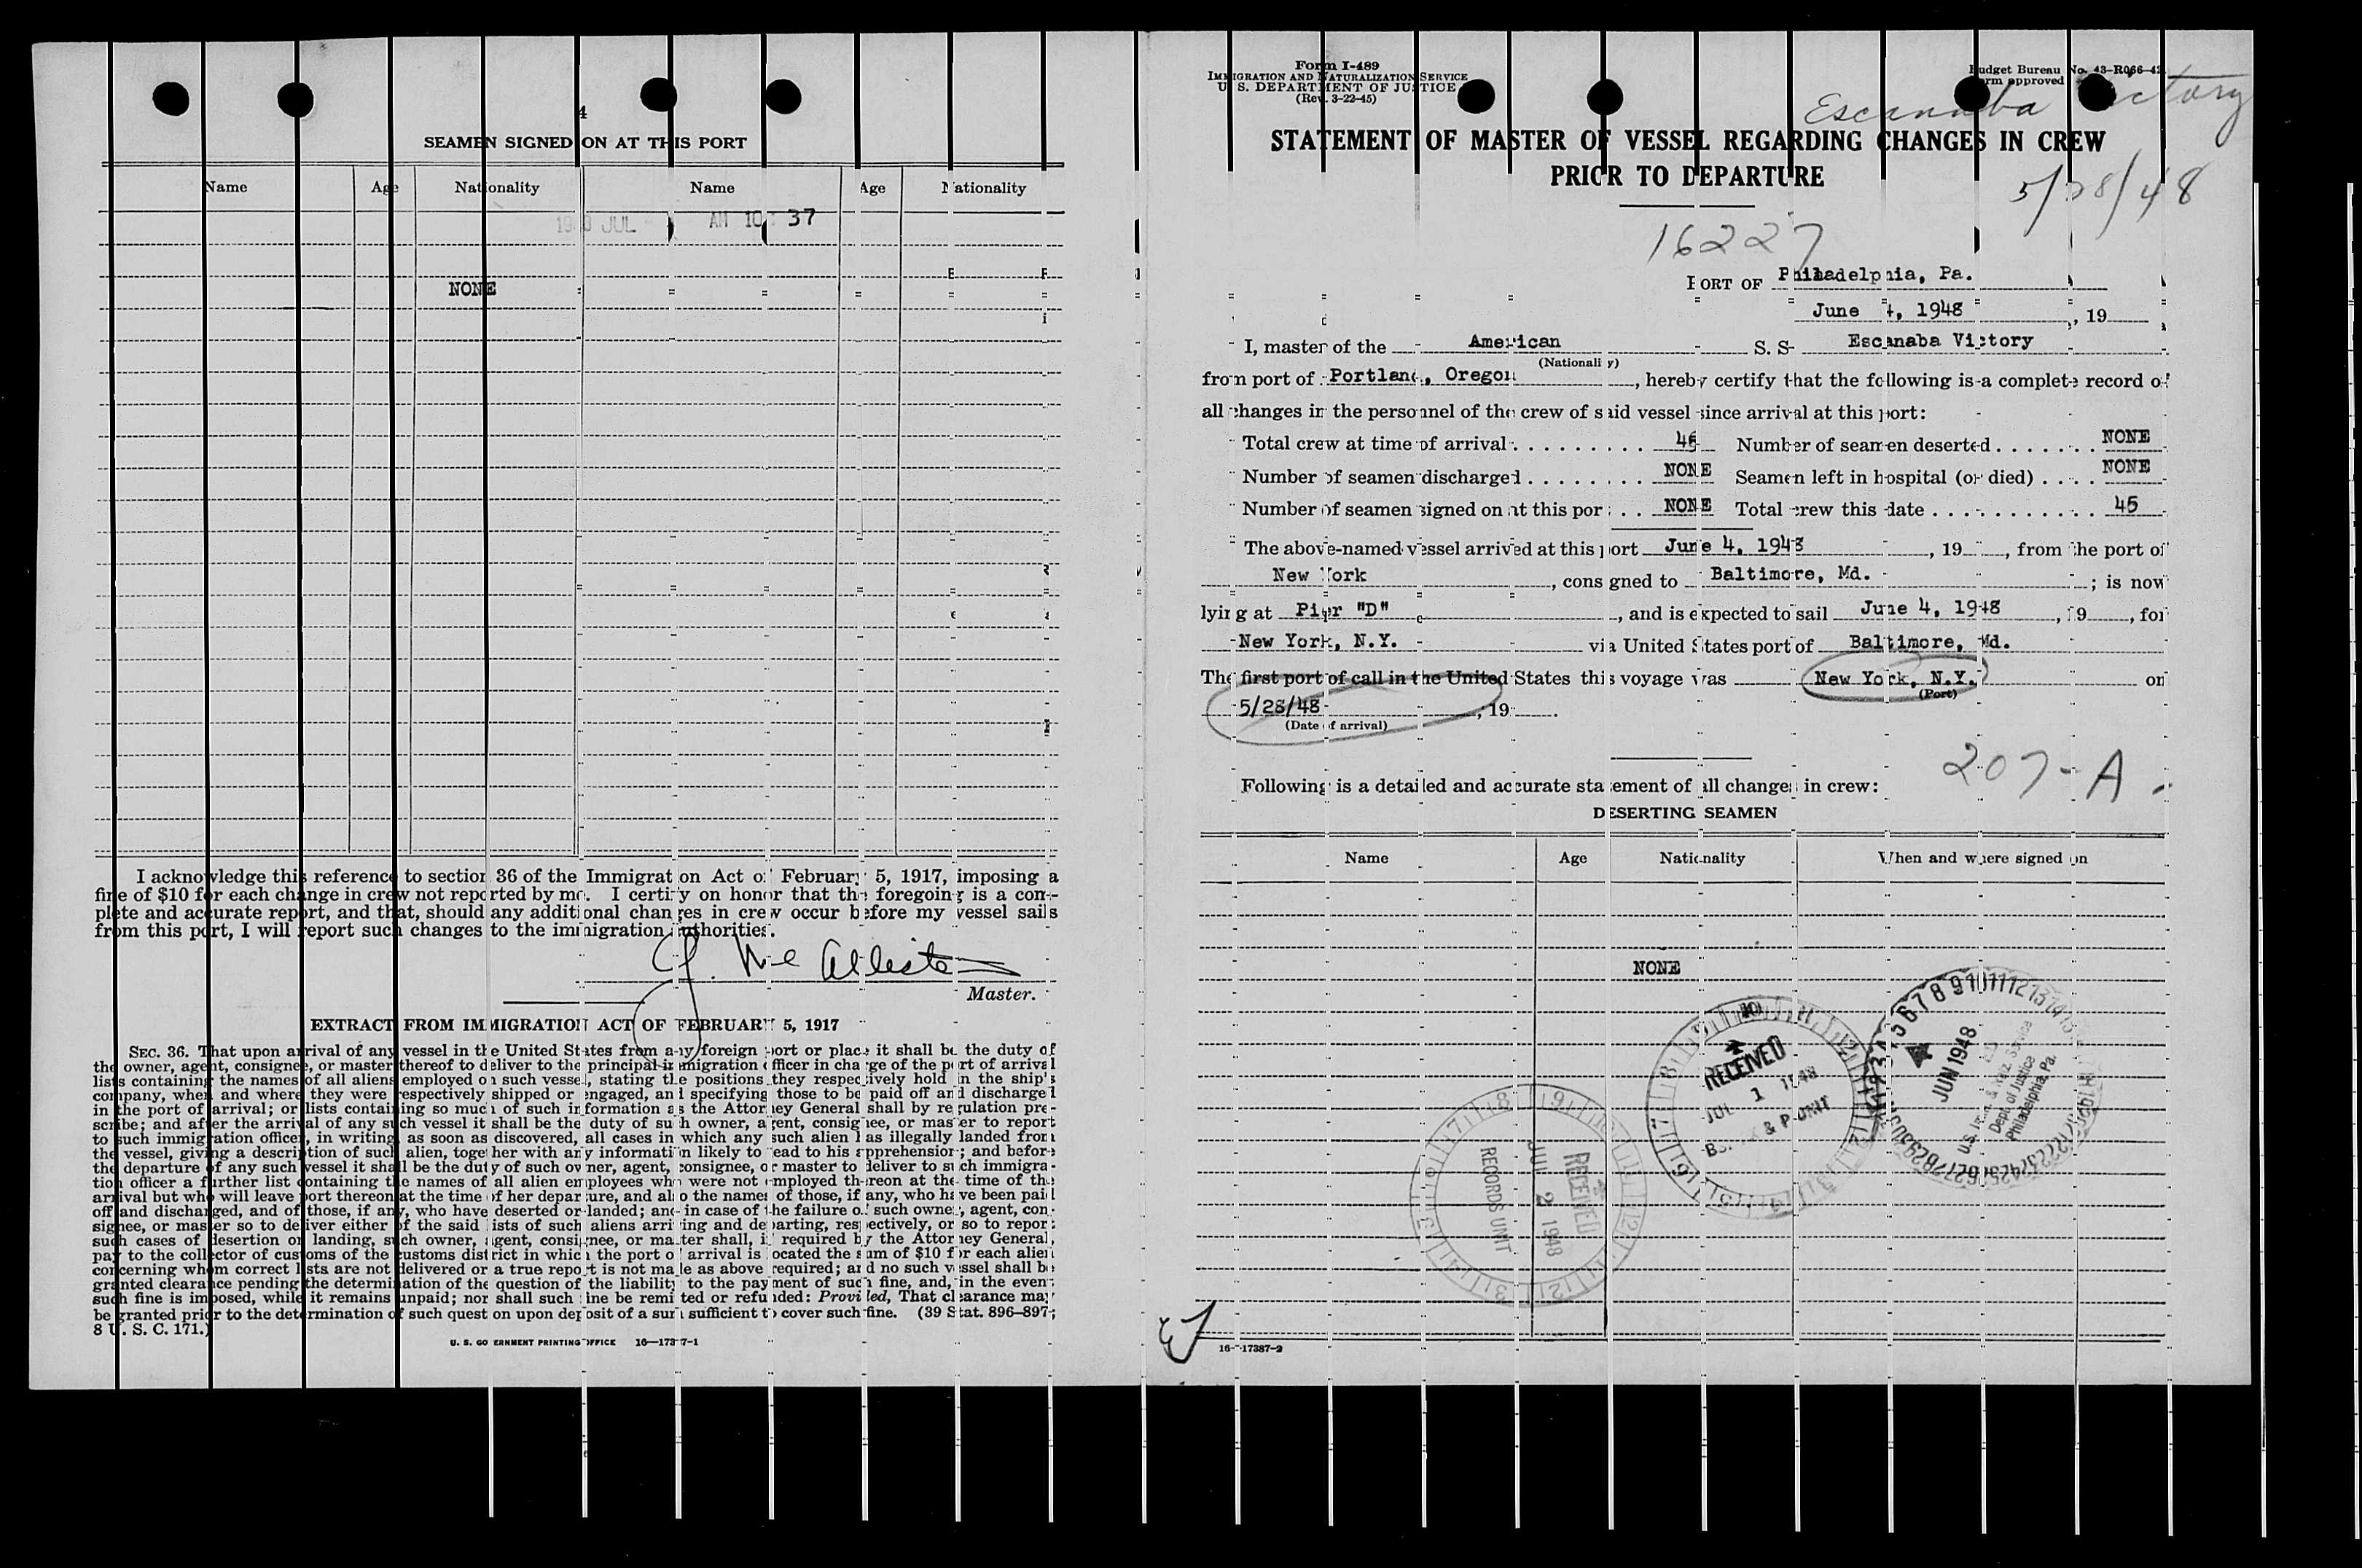 4
SEAMEN SIGNED ON AT THIS PORT
Name Age Nationality Name Age Nationality
JUL AM 10 37
NONE
I acknowledge this reference to section 36 of the Immigration Act of February 5, 1917, imposing a
fine of $10 for each change in crew not reported by me. I certify on honor that the foregoing is a com-
plete and accurate report, and that, should any additional changes in crew occur before my vessel sails
from this port, I will report such changes to the immigration authorities.
Master.
EXTRACT FROM IMMIGRATION ACT OF FEBRUARY 5, 1917
SEC. 36. That upon arrival of any vessel in the United States from any foreign port or place it shall be the duty of
the owner, agent, consignee, or master thereof to deliver to the principal immigration officer in charge of the port of arrival
lists containing the names of all aliens employed on such vessel, stating the positions they respectively hold in the ship's
company, when and where they were respectively shipped or engaged, and specifying those to be paid off and discharged
in the port of arrival; or lists containing so much of such information as the Attorney General shall by regulation pre-
scribe; and after the arrival of any such vessel it shall be the duty of such owner, agent, consignee, or master to report
to such immigration officer, in writing, as soon as discovered, all cases in which any such alien has illegally landed from
the vessel, giving a description of such alien, together with any information likely to lead to his apprehension; and before
the departure of any such vessel it shall be the duty of such owner, agent, consignee, or master to deliver to such immigra-
tion officer a further list containing the names of all alien employees who were not employed thereon at the time of the
arrival but who will leave port thereon at the time of her departure, and also the names of those, if any, who have been paid
off and discharged, and of those, if any, who have deserted or landed; and in case of the failure of such owner, agent, con-
signee, or master so to deliver either of the said lists of such aliens arriving and departing, respectively, or so to report
such cases of desertion or landing, such owner, agent, consignee, or master shall, if required by the Attorney General,
pay to the collector of customs of the customs district in which the port of arrival is located the sum of $10 for each alien
concerning whom correct lists are not delivered or a true report is not made as above required; and no such vessel shall be
granted clearance pending the determination of the question of the liability to the payment of such fine, and, in the event
such fine is imposed, while it remains unpaid; nor shall such fine be remitted or refunded: Provided, That clearance may
be granted prior to the determination of such question upon deposit of a sum sufficient to cover such fine. (39 Stat. 896–897;
8 U. S. C. 171.)
U. S. GOVERNMENT PRINTING OFFICE 16—17387-1
Form I-489
IMMIGRATION AND NATURALIZATION SERVICE
U. S. DEPARTMENT OF JUSTICE
(Rev. 3-22-45)
Budget Bureau No. 43-R066-42
Form approved
Escanaba Victory
STATEMENT OF MASTER OF VESSEL REGARDING CHANGES IN CREW
PRIOR TO DEPARTURE
5/28/48
16227
PORT OF Philadelphia, Pa.
June 4, 1948, 19
I, master of the American S. S. Escanaba Victory
(Nationality)
from port of Portland, Oregon, hereby certify that the following is a complete record of
all changes in the personnel of the crew of said vessel since arrival at this port:
Total crew at time of arrival Number of seamen deserted NONE
Number of seamen discharged NONE Seamen left in hospital (or died) NONE
Number of seamen signed on at this port NONE Total crew this date 45
The above-named vessel arrived at this port June 4, 1948, 19, from the port of
New York, consigned to Baltimore, Md.; is now
lying at Pier "D", and is expected to sail June 4, 1948, 19, for
New York, N.Y. via United States port of Baltimore, Md.
The first port of call in the United States this voyage was New York, N.Y. on
(Port)
5/28/48, 19.
(Date of arrival)
207-A
Following is a detailed and accurate statement of all changes in crew:
DESERTING SEAMEN
Name Age Nationality When and where signed on
NONE
RECEIVED
JUL 1 1948
& P UNIT
JUN 1948
Dept. of Justice
Philadelphia, Pa.
RECEIVED
JUL 2 1948
RECORDS UNIT
16—17387-2